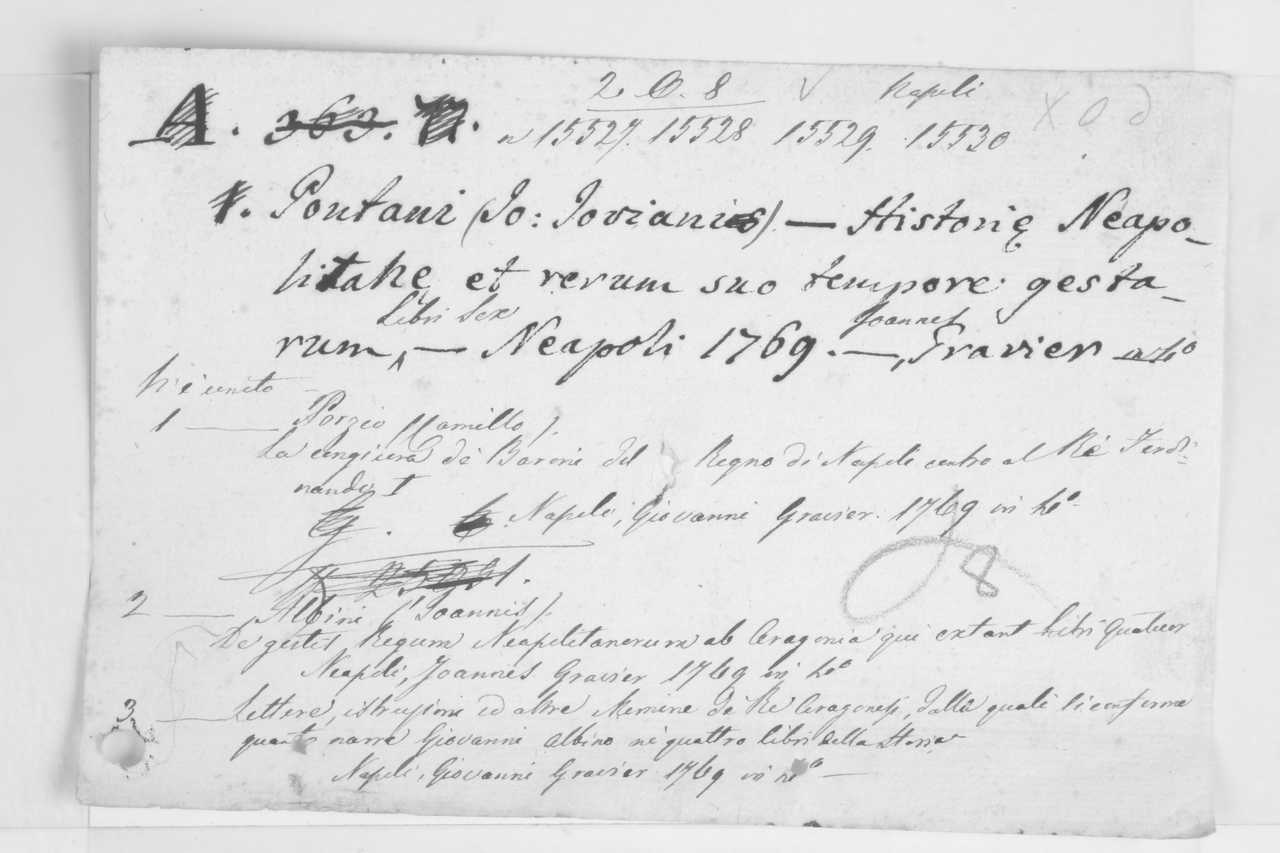 2. C. 8 Napoli
A. 363. n 15527. 15528 15529. 15530 X
1. Pontani (Jo: Joviani) — Historię Neapo-
litanę et rerum suo tempore gesta-
Libri Sex Joannes
rum, — Neapoli 1769. —, Gravier
Vi è unito —
1 — Porzio (Camillo).
La congiura de' Baroni del Regno di Napoli contro al Rè Ferdi-
nando I
Napoli, Giovanni Gravier. 1769 in 4°.
8
2 — Albini (Joannis).
De gestis Regum Neapolitanorum ab Aragonia qui extant Libri Quatuor
Neapoli, Joannes Gravier 1769 in 4°
3 — Lettere, istruzioni ed altre Memorie de' Rè Aragonesi, dalle quali si conferma
quanto narra Giovanni Albino ne' quattro libri della Storia
Napoli, Giovanni Gravier 1769 in 4° —